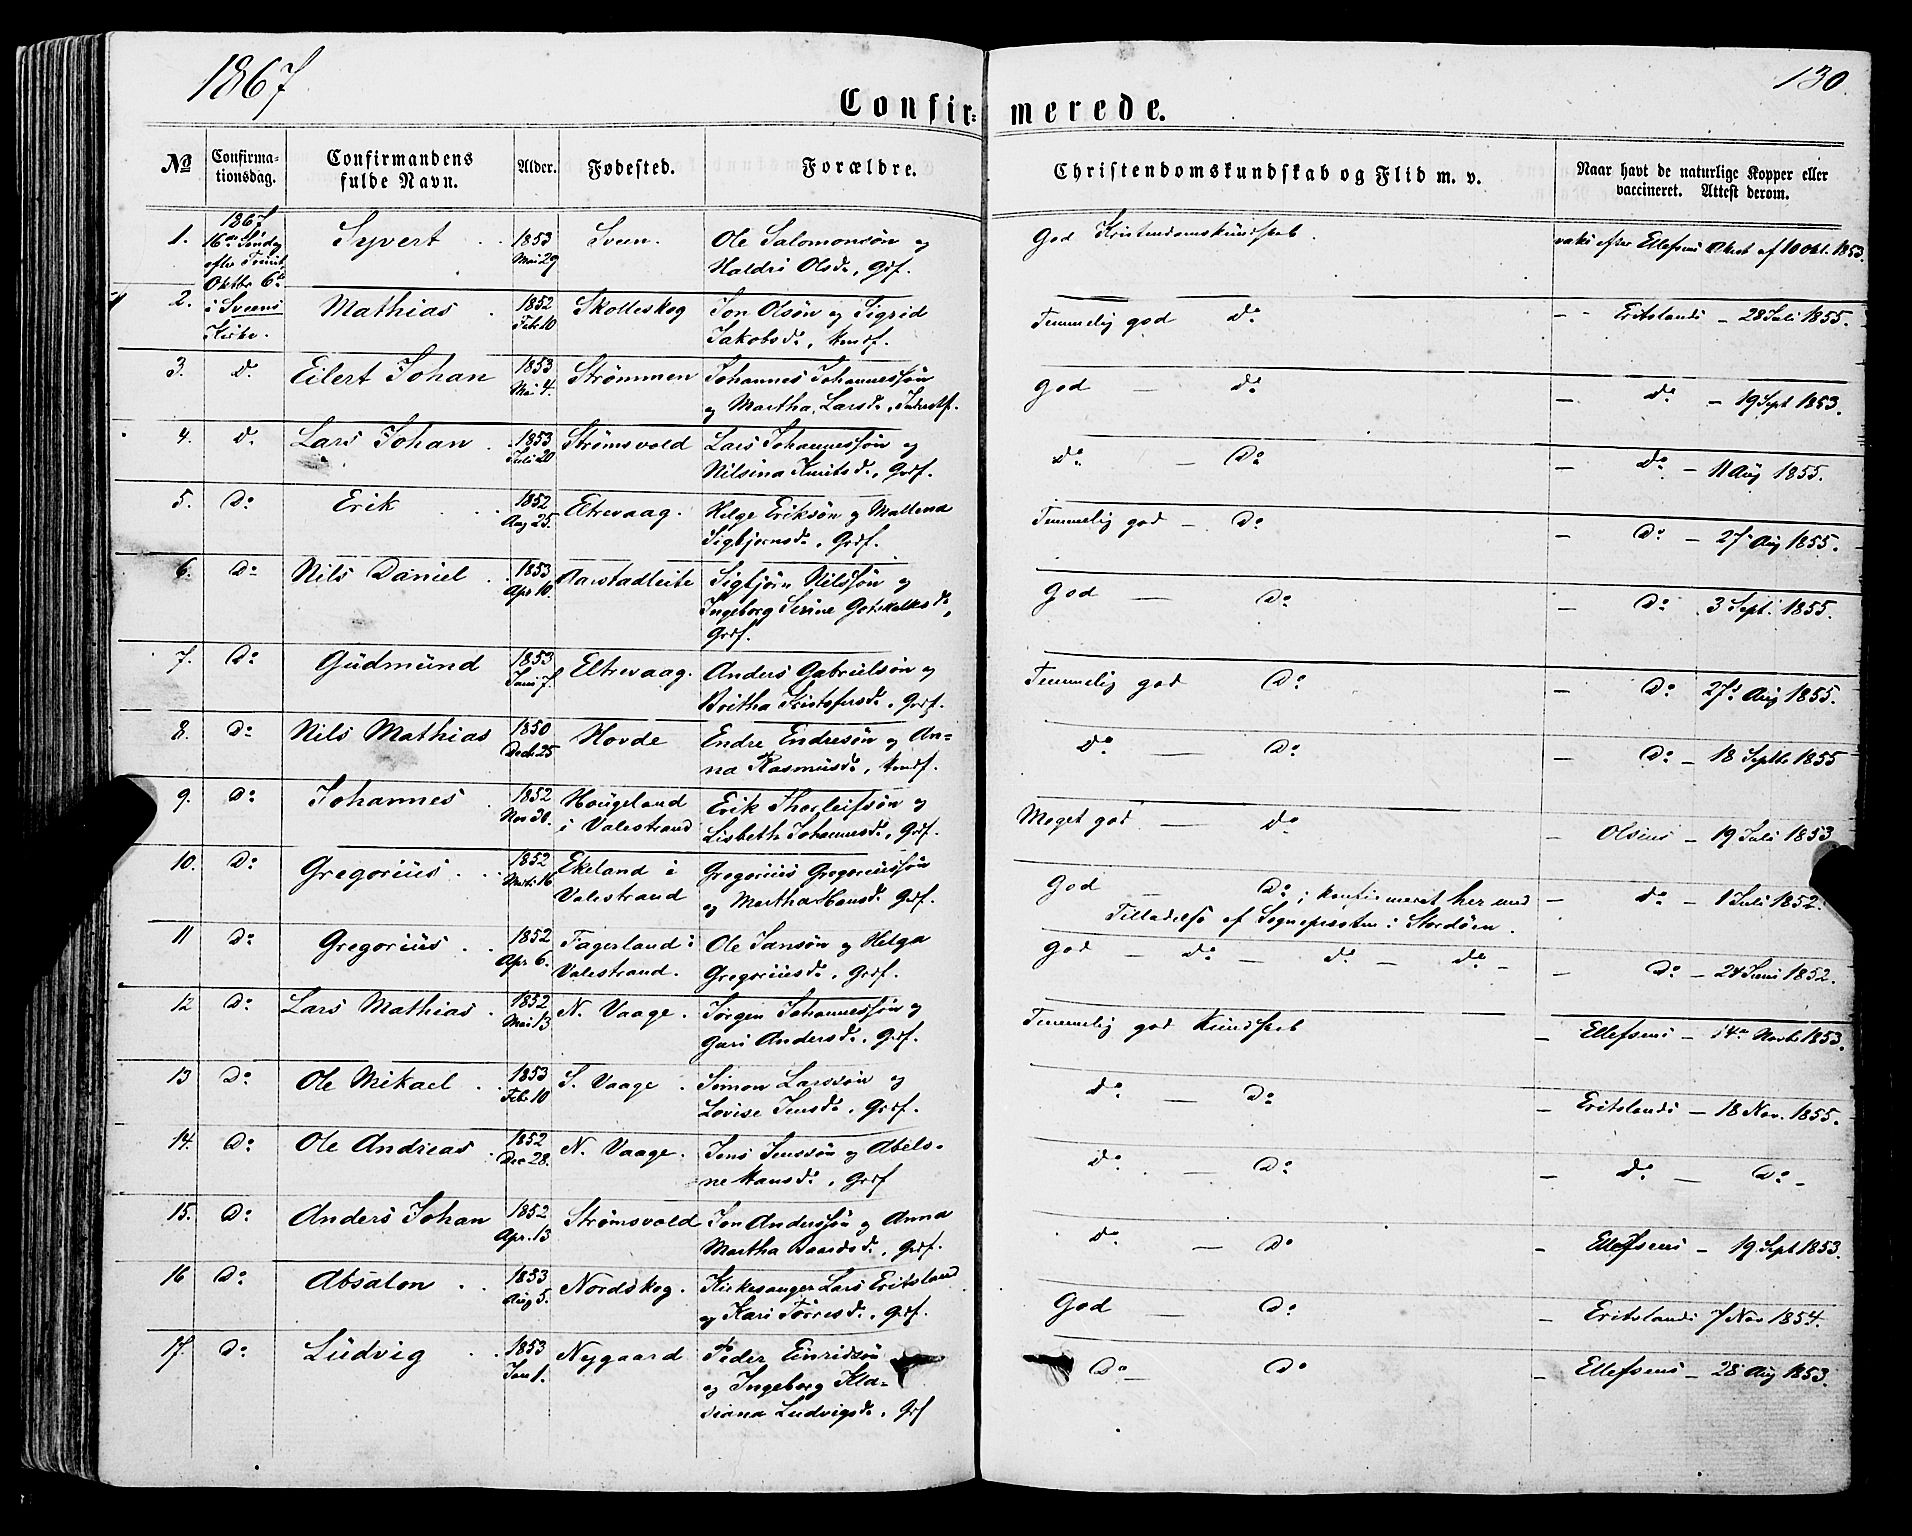 1867
130.
Confir= merede.
No
Confirma-
tionsdag.
Confirmandens
fulde Navn.
Alder.
Fødested.
Forældre.
Christendomskundskab og Flid m. v.
Naar havt de naturlige Kopper eller
vaccineret. Attest derom.
1. 1867 16de Søndag efter Trinit. Oktbr 6te i Sveens Kirke. Syvert 1853 Mai 29 Sveen. Ole Salomonsøn og
Haldri Olsdr, Grdf. God Kristendomskundskab. vaks efter Ellefsens Attest af 10 Okt. 1853.
2. Mathias 1852 Feb. 10 Skolleskog Jon Olsøn og Sigrid
Jakobsdr, Hmdf. Temmelig god Do — Eritslands — 28 Juli 1855.
3. Do Eilert Johan 1853 Mai 4. Strømmen Johannes Johannessøn
og Martha Larsdr, Inderstf. God — Do — Do — 19 Sept 1853.
4. Do Lars Johan 1853 Juli 20 Strømsvold Lars Johannessøn og
Nilsina Knutsdr, Grdf. Do — Do — Do — 11 Aug 1855.
5. Do Erik 1852 Aug 25. Eltrevaag. Helge Eriksøn og Mallena
Sigbjørnsdr, Grdf. Temmelig god — Do — Do — 27 Aug 1855.
6. Do Nils Daniel 1853 Apr 10. Aarstadleite Sigbjørn Nilssøn og
Ingeborg Serine Gotskalksdr,
Grdf. God — Do — Do 3 Sept. 1855.
7. Do Gudmund 1853 Juni 7. Eltrevaag. Anders Gabrielsøn og
Britha Kristofersdr, Grdf. Temmelig god Do — Do 27de Aug 1855.
8. Do Nils Mathias 1850 Decb. 25 Hovde Endre Endresøn og An-
na Rasmusdr, Hmdf. Do — Do — Do — 18 Septb 1855
9. Do Johannes 1852 Nov 30. Hougeland
i Valestrand Erik Thorleifsøn og
Lisbeth Johannesdr, Grdf. Meget god — Do — Olsens — 19 Juli 1853
10. Do Gregorius 1852 Marts 16 Ekeland i
Valestrand Gregorius Gregoriussøn
og Martha Hansdr Grdf. God — Do; konfirmeret her med
Tilladelse af Sognepresten i Stordøen. — Do — 1 Juli 1852.
11 Do Gregorius 1852 Apr 6. Fagerland i
Valestrand. Ole Jansøn og Helga
Gregoriusdr, Grdf. God — Do — Do — Do — — Do — 24 Juni 1852.
12 Do Lars Mathias 1852 Mai 13 N. Vaage. Jørgen Johannessøn og
Guri Andersdr, Grdf. Temmelig god Kundskab — Ellefsens — 14de Novb 1853.
13 Do Ole Mikael 1853 Feb. 10 S. Vaage Simon Larssøn og
Lovise Jensdr, Grdf. Do — Do — Eritslands — 18 Nov. 1855.
14. Do Ole Andreas 1852 Dec 28. N. Vaage. Jens Jenssøn og Abelo-
ne Hansdr, Grdf Do — Do — Do — Do —
15. Do Anders Johan 1852 Apr. 13 Strømsvold Jon Anderssøn og Anna
Martha Baardsdr, Grdf. Do — Do — Ellefsens — 19 Sept 1853.
16 Do Absalon 1853 Aug 5. Nordskog. Kirkesanger Lars Eritsland
og Kari Torresdr, Grdf. God — Do — Eritslands 7 Nov 1854.
17. Do Ludvig 1853 Jan 1. Nygaard Peder Einridsøn
og Ingeborg Kla-
diana Ludvigsdr, Grf Do — Do — Ellefsens — 28 Aug 1853.